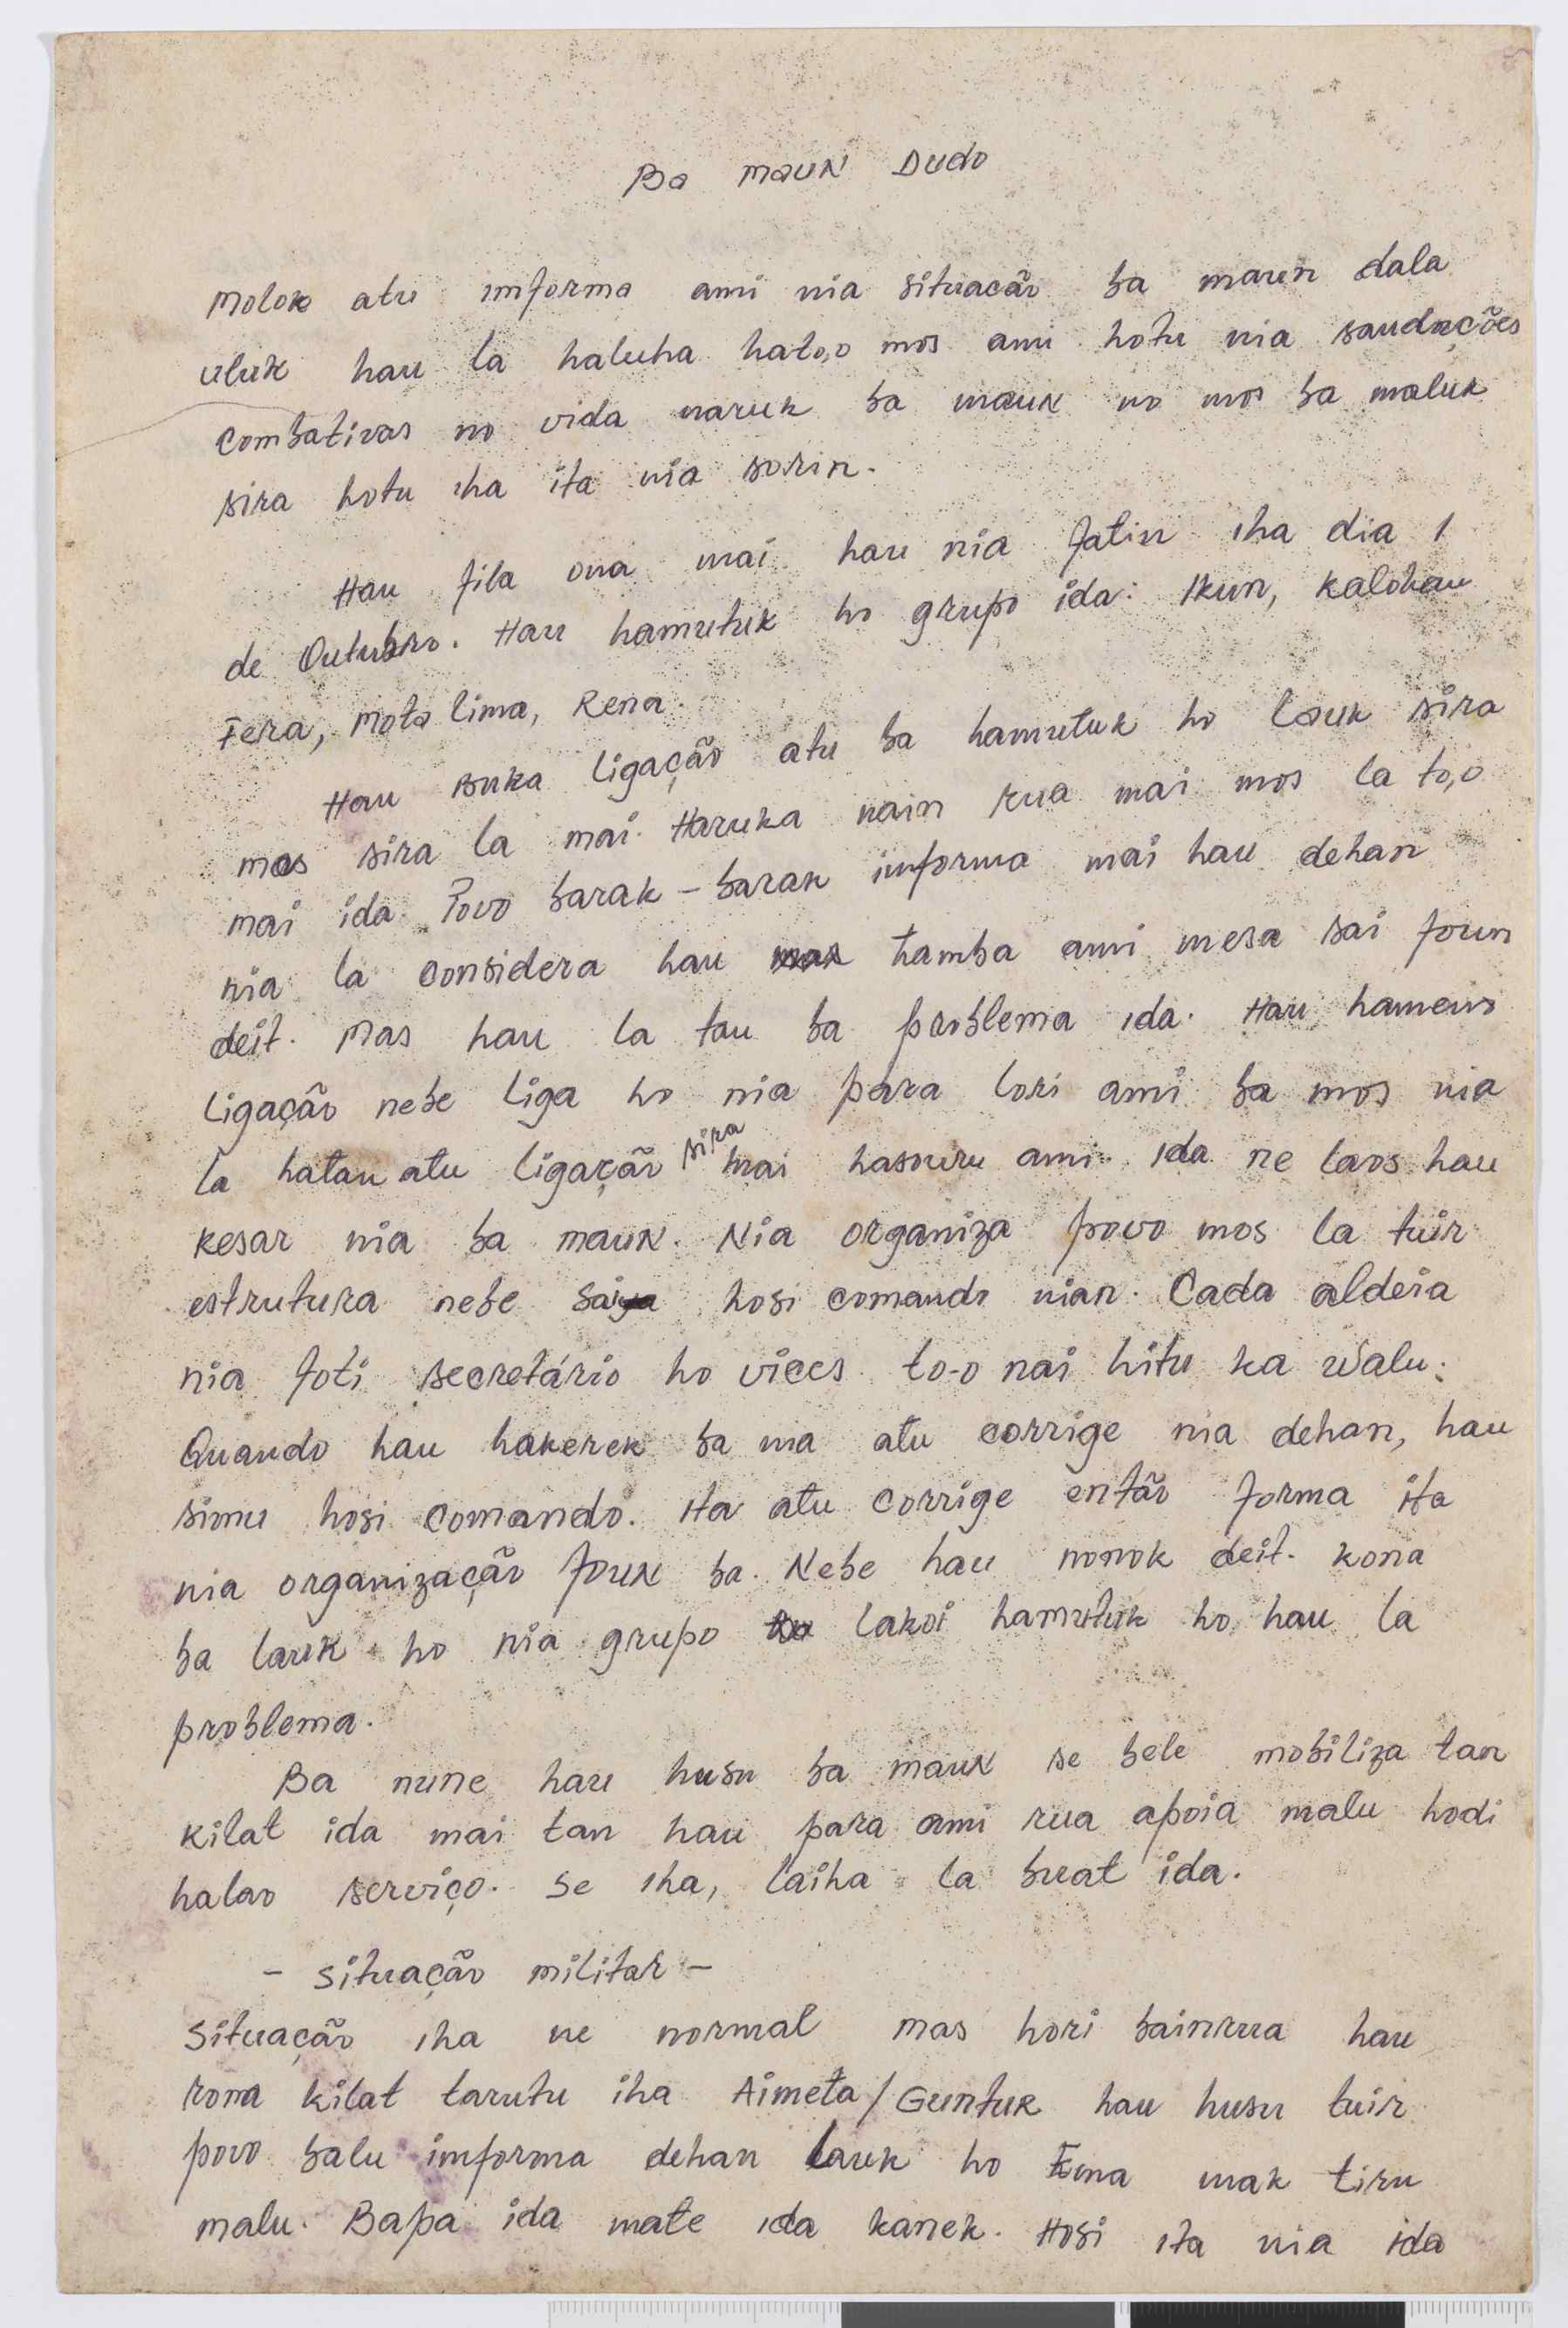 Ba maun Dudo
Molok atu imforma ami nia situacão ba maun dala
uluk hau la haluha hato,o mos ami hotu nia saudações
combativas no vida naruk ba maun no mos ba maluk
sira hotu iha ita nia sorin.
Hau fila ona mai hau nia fatin iha dia 1
de Outubro. Hau hamutuk ho grupo ida: Ikun, Kalohan
Fera, Mota lima, Rena.
Hau buka ligação atu ba hamutuk ho Lauk sira
mas sira la mai. Haruka nain rua mai mos la to,o
mai ida. Povo barak-barak informa mai hau dehan
nia la considera hau tamba ami mesa sai foun
deit. Mas hau la tau ba problema ida. Hau hameno
ligação nebe liga ho nia para lori ami ba mos nia
la hatan atu ligação sira mai hasouru ami. Ida ne laos hau
kesar nia ba maun. Nia organiza povo mos la tuir
estrutura nebe sai hosi comando nian. Cada aldeia
nia foti secretário ho vices to-o nai hitu ka walu.
Quando hau hakerek ba nia atu corrige nia dehan, hau
simu hosi comando. Ita atu corrige então forma ita
nia organização foun ba. Nebe hau nonok deit. Kona
ba lauk ho nia grupo lakoi hamutuk ho hau la
problema.
Ba nune hau husu ba maun se bele mobiliza tan
kilat ida mai tan hau para ami rua apoia malu hodi
halao serviço. Se iha, laiha la buat ida.
- Situação militar -
Situação iha ne normal mas hori bainrua hau
rona kilat tarutu iha Aimeta/Guntur hau husu tuir
povo balu imforma dehan Lauk ho Ema mak tiru
malu. Bapa ida mate ida kanek. Hosi ita nia ida